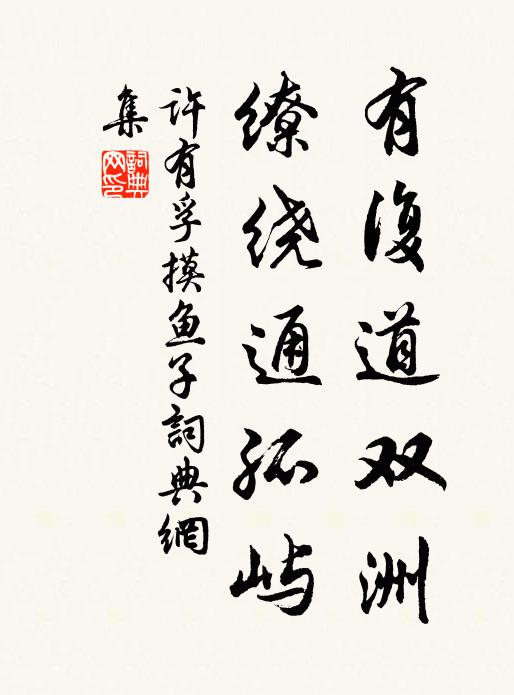 有復道双洲
缭绕通孤屿
许有孚摸鱼子詞典網
集
詞典网印